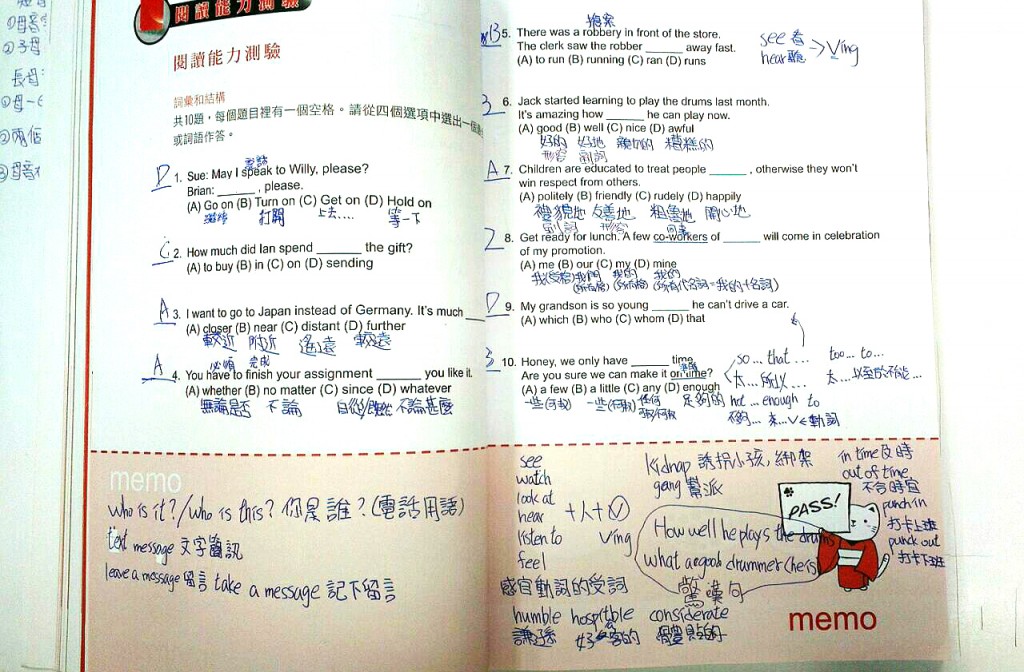 閱讀能力測驗
閱讀能力測驗
詞彙和結構
共10題，每個題目裡有一個空格。請從四個選項中選出一個
或詞語作答。
電話
D 1. Sue: May I speak to Willy, please?
Brian: ______ , please.
(A) Go on (B) Turn on (C) Get on (D) Hold on
繼續 打開 上去.... 等一下
C 2. How much did Ian spend ______ the gift?
(A) to buy (B) in (C) on (D) sending
A 3. I want to go to Japan instead of Germany. It's much
(A) closer (B) near (C) distant (D) further
較近 附近 遙遠 較遠
必須 完成
A 4. You have to finish your assignment ______ you like it.
(A) whether (B) no matter (C) since (D) whatever
無論是否 不論 自從/既然 不論甚麼
搶案
B 5. There was a robbery in front of the store.
The clerk saw the robber ______ away fast.
(A) to run (B) running (C) ran (D) runs
see 看
hear 聽 → Ving
B 6. Jack started learning to play the drums last month.
It's amazing how ______ he can play now.
(A) good (B) well (C) nice (D) awful
好的 好地 糟糕的
形容 副詞
A 7. Children are educated to treat people ______ , otherwise they won't
win respect from others.
(A) politely (B) friendly (C) rudely (D) happily
禮貌地 友善地 粗魯地 開心地
副詞 形容 同事
8. Get ready for lunch. A few co-workers of ______ will come in celebration
of my promotion.
(A) me (B) our (C) my (D) mine
我(受格) 我們 我的 我的
(所有格) (所有格) (所有代名詞=我的+名詞)
D 9. My grandson is so young ______ he can't drive a car.
(A) which (B) who (C) whom (D) that
B 10. Honey, we only have ______ time.
Are you sure we can make it on time?
(A) a few (B) a little (C) any (D) enough
一些(可數) 一些(不可數) 任何 足夠的
so... that... too... to...
太...所以... 太...以至於不能...
not ... enough to
不夠... 去...V←動詞
memo
who is it?/who is this? 你是誰?(電話用語)
text message 文字簡訊
leave a message 留言 take a message 記下留言
see
watch
look at
hear
listen to
feel
+人+ V
Ving
感官動詞的受詞
humble hospitble considerate
謙遜 好客的 體貼的
kidnap 誘拐小孩, 綁架
gang 幫派
How well he plays the drums
what a good drummer (he is)
驚嘆句
in time 及時
out of time
不合時宜
punch in
打卡上班
punch out
打卡下班
PASS!
memo